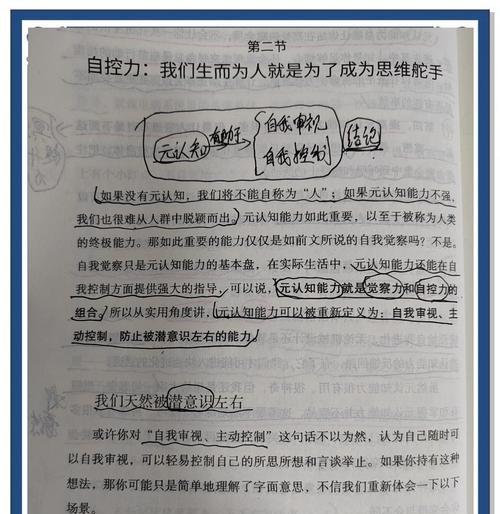 第二节
自控力：我们生而为人就是为了成为思维舵手
元认知 有助于 自我审视 结论
自我控制
如果没有元认知，我们将不能自称为“人”；如果元认知能力不强，
我们也很难从人群中脱颖而出。元认知能力如此重要，以至于被称为人类
的终极能力。那如此重要的能力仅仅是如前文所说的自我觉察吗？不是。
自我觉察只是元认知能力的基本盘，在实际生活中，元认知能力还能在自
我控制方面提供强大的指导，可以说，元认知能力就是觉察力和自控力的
组合。所以从实用角度讲，元认知能力可以被重新定义为：自我审视、主
动控制，防止被潜意识左右的能力。
我们天然被潜意识左右
或许你对“自我审视、主动控制”这句话不以为然，认为自己随时可
以自我审视，可以轻易控制自己的所思所想和言谈举止。如果你持有这种
想法，那你可能只是简单地理解了字面意思，不信我们重新体会一下以下
场景。